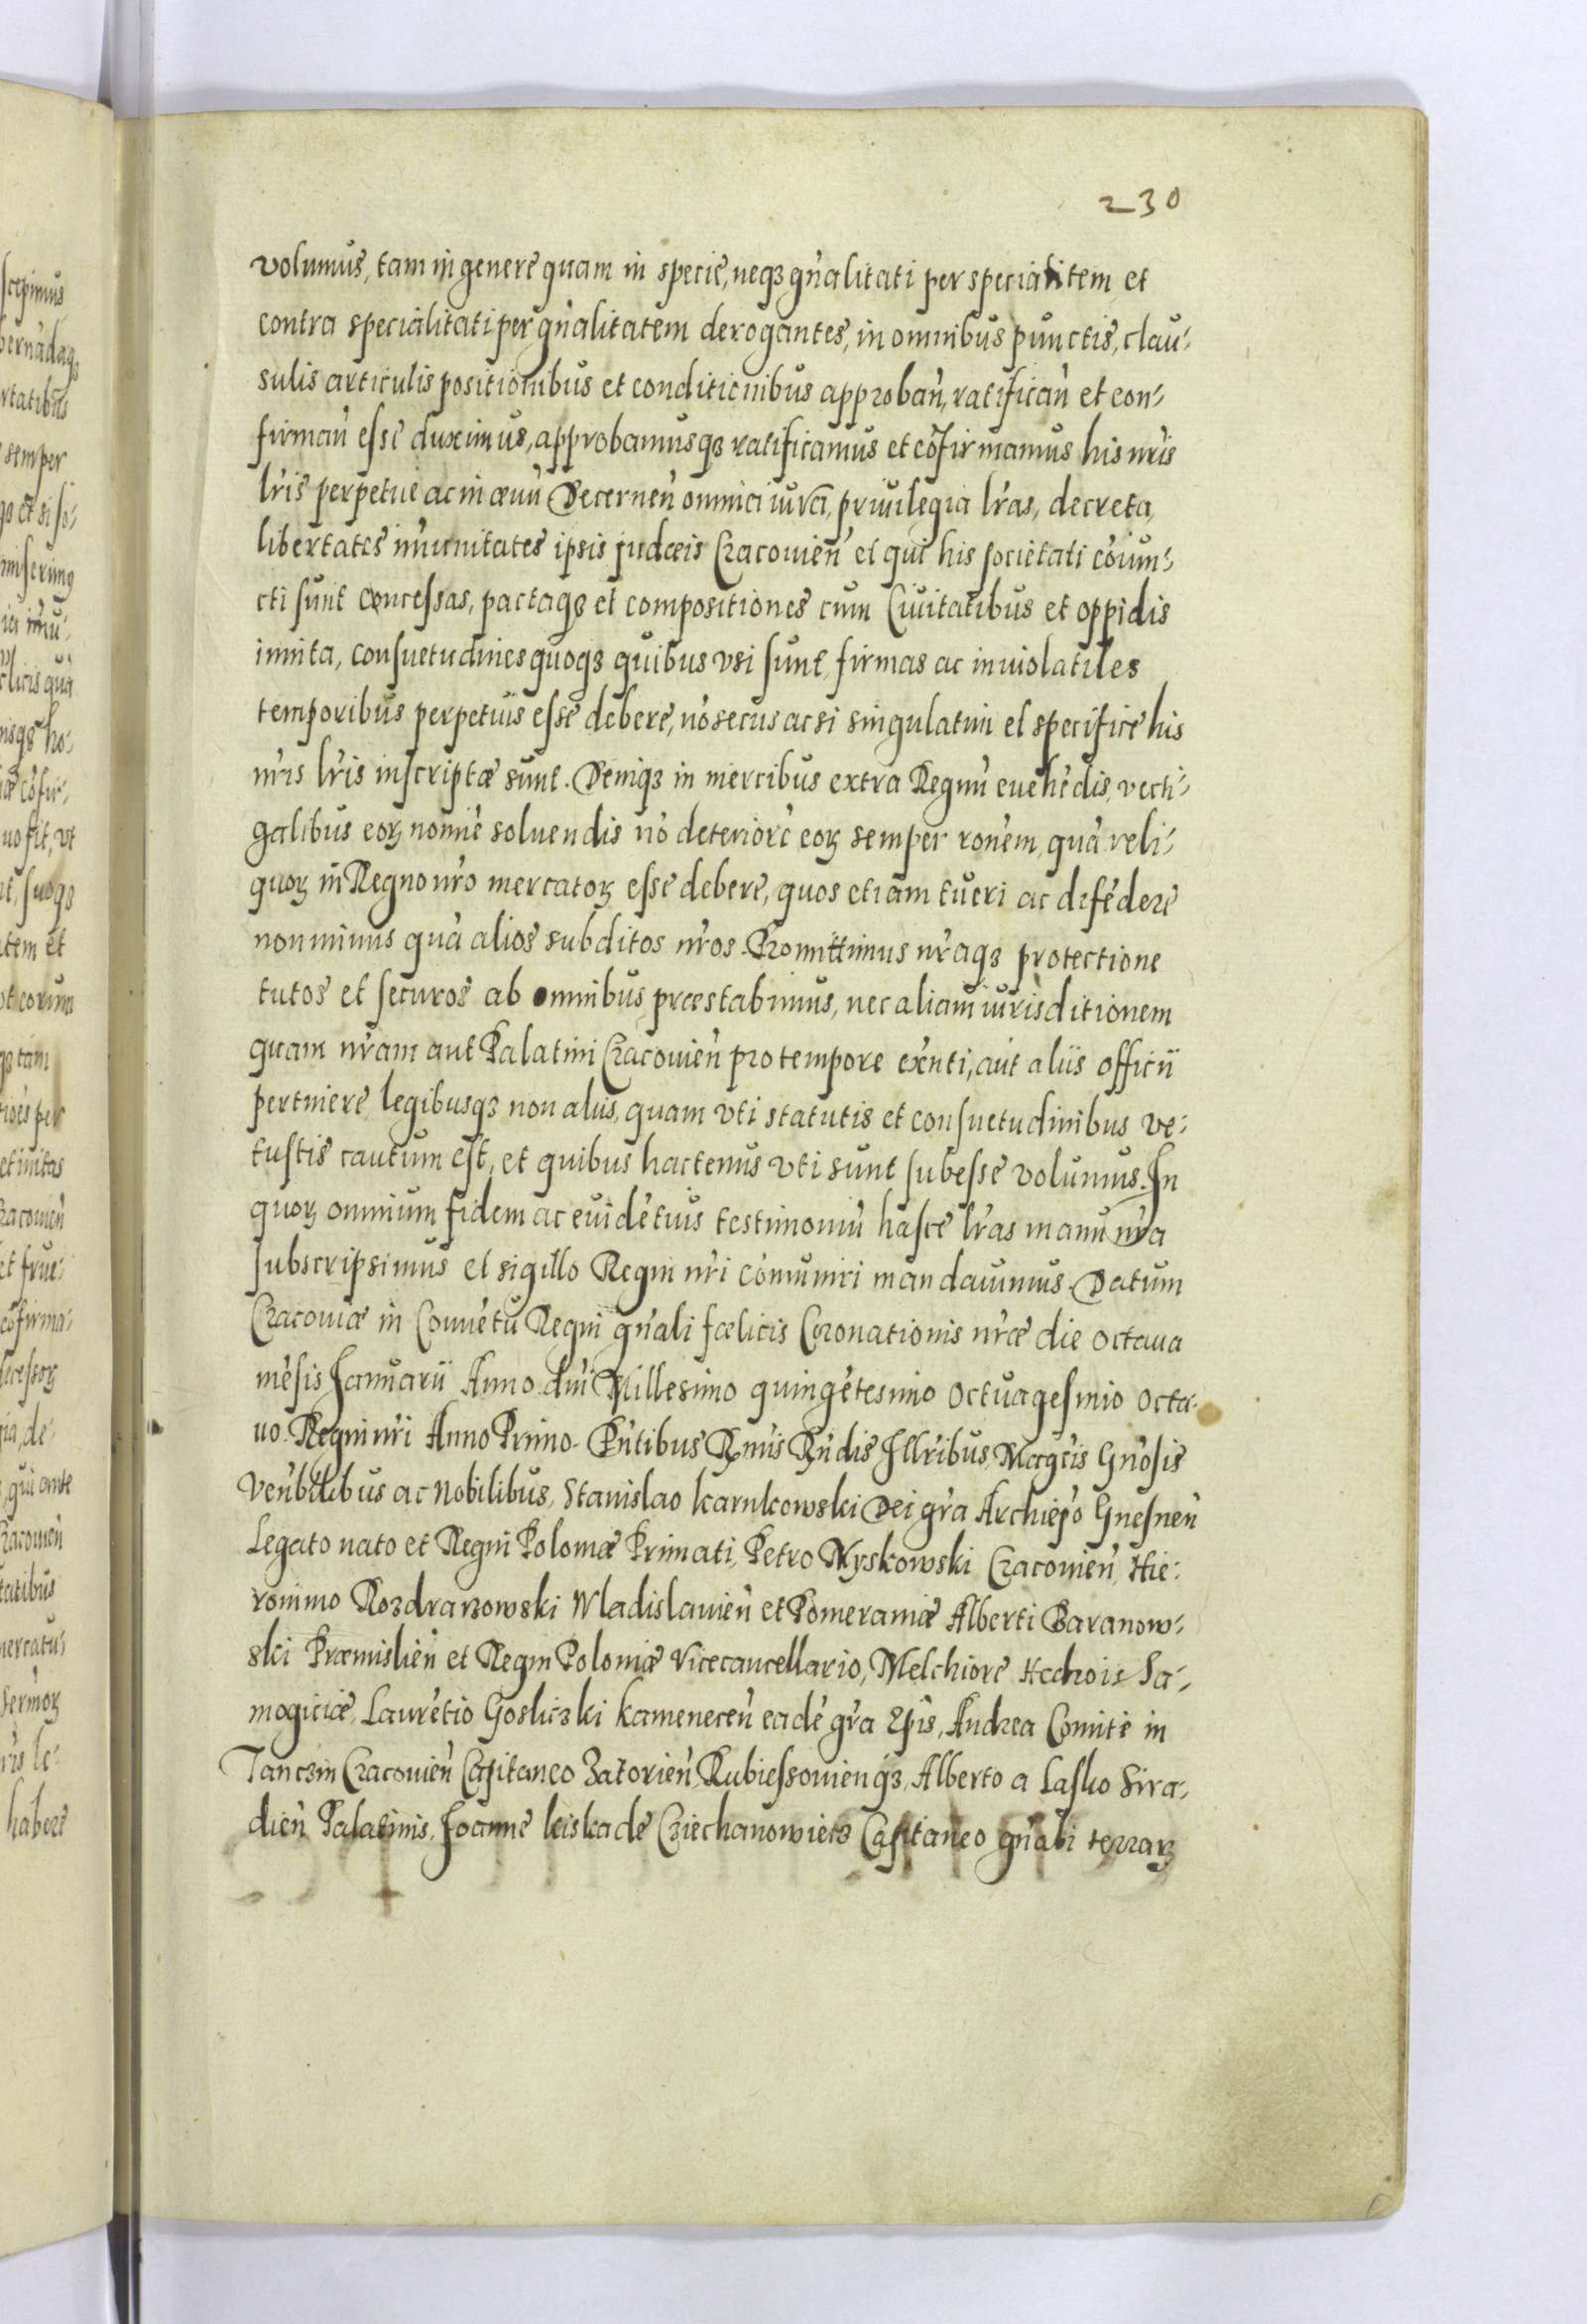 230
volumus, tam in genere quam in specie, neqꝫ gn̄alitati per specialitem et
contra specialitati per gn̄alitatem derogantes, in omnibus punctis, clau-
sulis articulis positionibus et conditionibus approban̄, ratifican̄ et con-
firman̄ esse duximus, approbamusqꝫ ratificamus et cōfirmamus his nr̄is
lr̄is perpetue ac in ævū Decernen̄ omnia iura, privilegia lr̄as, decreta,
libertates im̄unitates ipsis judæis Cracouien̄ et qui his societati cōiun-
cti sunt concessas, pactaqꝫ et compositiones cum Ciuitatibus et oppidis
innita, consuetudines quoqꝫ quibus vsi sunt, firmas ac inuiolatiles
temporibus perpetuis esse debere, nō secus ac si singulatim et specifice his
nr̄is lr̄is inscriptæ sunt. Deniqꝫ in mercibus extra Regnū euehēdis, vecti-
galibus eoꝝ nomīe soluendis nō deteriorē eoꝝ semper ron̄em, quā reli-
quoꝝ in Regno nr̄o mercatoꝝ esse debere, quos etiam tueri ac defēdere
non minus quā alios subditos nr̄os. Promittimus nr̄aqꝫ protectione
tutos et securos ab omnibus præstabimus, nec aliam iurisditionem
quam nr̄am aut Palatini Cracouien̄ pro tempore ex̄nti, aut aliis officii
pertinere, legibusqꝫ non aliis, quam vti statutis et consuetudinibus ve-
tustis cautum est, et quibus hactenus vti sunt subesse volumus. In
quoꝝ omnium fidem ac euidētius testimoniū hasce lr̄as manu nr̄a
subscripsimus et sigillo Regni nr̄i cōmuniri mandauimus. Datum
Cracouiæ in Conuētu Regni gn̄ali fœlicis Coronationis nr̄æ die octaua
mēsis Januarii Anno dn̄i Millesimo quingētesimo octuagesimo octa-
uo. Regni nr̄i Anno Primo. Pn̄tibus Rm̄is Rn̄dis Illr̄ibus, Magcis Gn̄osis
Ven̄bilibus ac Nobilibus, Stanislao Karnkowski Dei gr̄a Archiep̄o Gnesnen̄
Legato nato et Regni Poloniæ Primati, Petro Myskowski Cracouien̄, Hie-
ronimo Rozdrazowski Wladislauien̄ et Pomeraniæ Alberti Baranow-
ski Præmislien̄ et Regni Poloniæ Vicecancellario, Melchiore Hedrois Sa-
mogitiæ, Laurētio Gosliczki Kamenecen̄ eadē gr̄a Ep̄is, Andrea Comite in
Tanczin Cracouien̄ Capitaneo Zatorien̄ Rubiessouienqꝫ, Alberto a Lasko Sira-
dien̄ Palatinis, Joanne Kiska de Cziechanowiecz Capitaneo gn̄ali terraꝝ